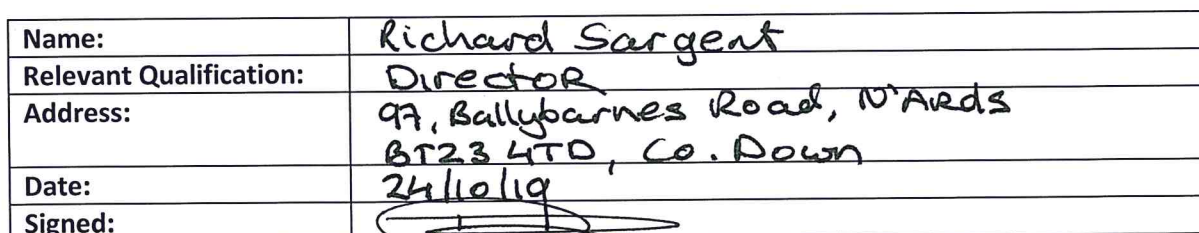 Name: Richard Sargent
Relevant Qualification: DirectoR
Address: 97, Ballybarnes Road, N'ARds
BT23 4TD, Co. Down
Date: 24/10/19
Signed: